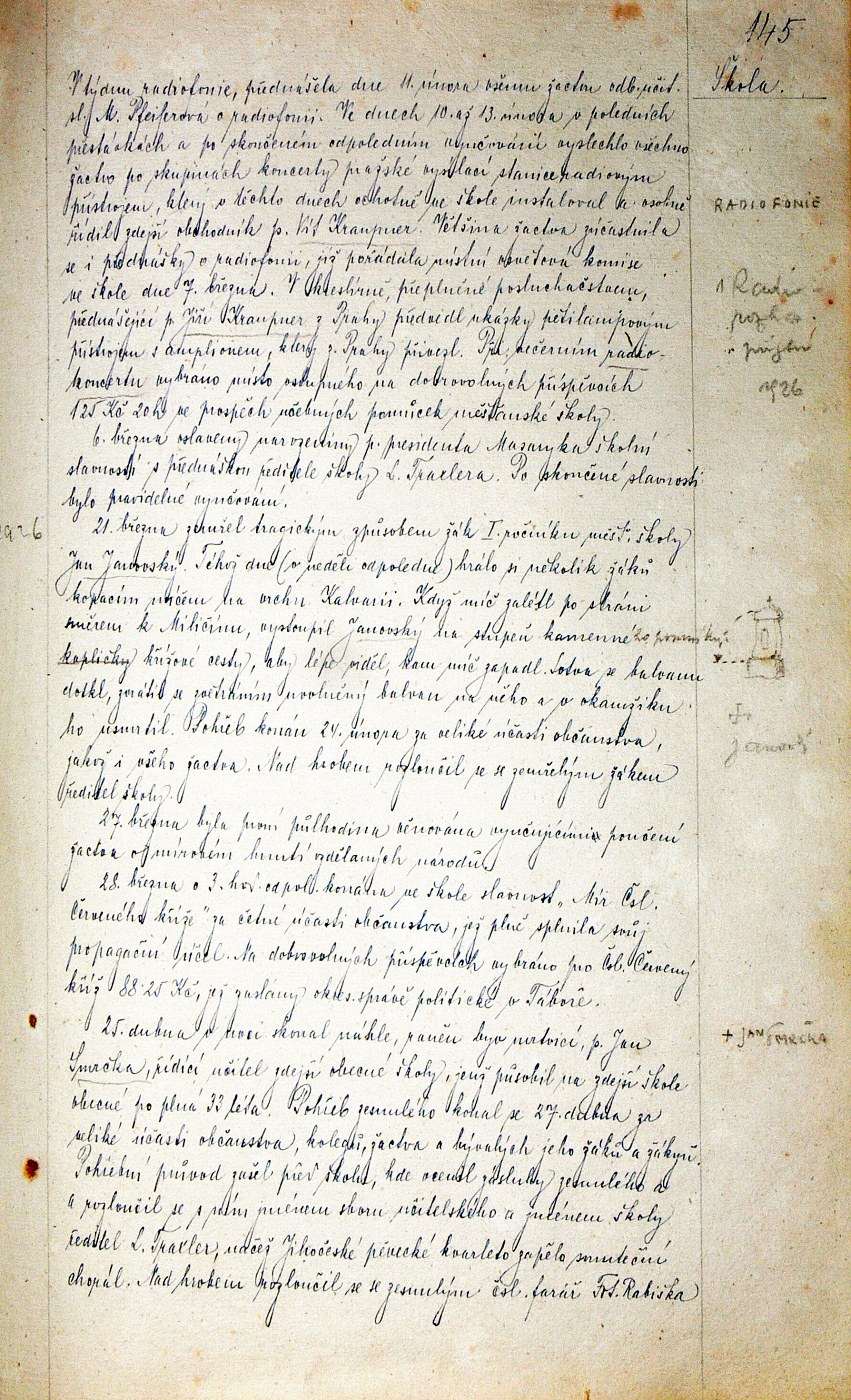 145
Škola.
V týdnu radiofonie, přednášela dne 11. února všemu žactvu odb. učit.
sl. M. Pfeiferová o radiofonii. Ve dnech 10. až 13. února v poledních
přestávkách a po skončeném odpoledním vyučování vyslechlo všechno
žactvo po skupinách koncerty pražské vysílací stanice radiovým
přístrojem, který v těchto dnech ochotně ve škole instaloval a osobně
řídil zdejší obchodník p. Vít Kraupner. Většina žactva zúčastnila
se i přednášky o radiofonii, již pořádala místní osvětová komise
ve škole dne 7. března. V přeplněné posluchačstvem,
přednášející p. Jiří Kraupner z Prahy předvedl ukázky pětilampovým
přístrojem s amplionem, který z Prahy přivezl. Při večerním radio-
koncertu vybráno místo vstupného na dobrovolných příspěvcích
125 Kč 20h ve prospěch učebných pomůcek měšťanské školy.
6. března oslaveny narozeniny p. presidenta Masaryka školní
slavností s přednáškou ředitele školy L. Traxlera. Po skončené slavnosti
bylo pravidelné vyučování.
21. března zemřel tragickým způsobem žák I. ročníku měšť. školy
Jan Janovský. Téhož dne (v neděli odpoledne) hrálo si několik žáků
kopacím míčem na vrchu Kalvarii. Když míč zalétl po stráni
směrem k Miličínu, vystoupil Janovský na stupeň kamenného pomníku
kapličky křížové cesty, aby lépe viděl, kam míč zapadl. Sotva se balvanu
dotkl, zvrátil se zvětráním uvolněný balvan na něho a v okamžiku
ho usmrtil. Pohřeb konán 24. února za veliké účasti občanstva,
jakož i všeho žactva. Nad hrobem rozloučil se se zemřelým žákem
ředitel školy.
27. března byla první půlhodina věnována vyučujícími poučení
žactva o mírovém hnutí vzdělaných národů.
28. března o 3. hod. odpol. konána ve škole slavnost „Mír Čsl.
Červeného kříže" za četné účasti občanstva, jež plně splnila svůj
propagační účel. Na dobrovolných příspěvcích vybráno pro Čsl. Červený
kříž 88.25 Kč, jež zaslány okres. správě politické v Táboře.
25. dubna v noci skonal náhle, raněn byv mrtvicí, p. Jan
Smrčka, řídící učitel zdejší obecné školy, jenž působil na zdejší škole
obecné po plná 33 léta. Pohřeb zesnulého konal se 27. dubna za
veliké účasti občanstva, kolegů, žactva a bývalých jeho žáků a žákyň.
Pohřební průvod zašel před školu, kde ocenil zásluhy zesnulého a
a rozloučil se s ním jménem sboru učitelského a jménem školy
ředitel L. Traxler, načež Jihočeské pěvecké kvarteto zapělo smuteční
chorál. Nad hrobem rozloučil se se zesnulým čsl. farář Frt. Rabiška
RADIOFONIE
1926
1926
+
+ JAN SMRČKA